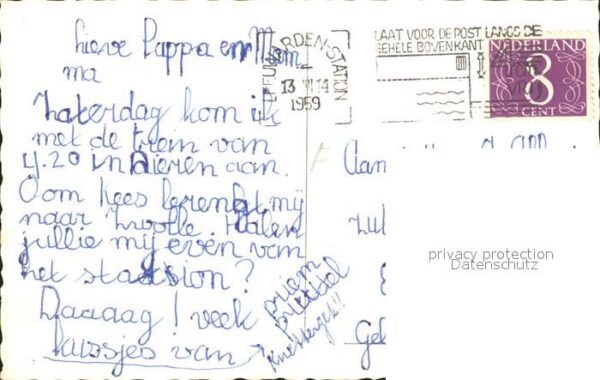 lieve Pappa en Mam
ma
Zaterdag kom ik
met de trein van
4.20 in Dieren aan.
Oom Kees brengt mij
naar Zwolle. Halen
jullie mij even van
het station?
Daaaag! veel
kussjes van
LEEUWARDEN-STATION
13 VII 14
1959
LAAT VOOR DE POST LANGS DE
GEHELE BOVENKANT
VRIJ
NEDERLAND
8
CENT
Aan
privacy protection
Datenschutz